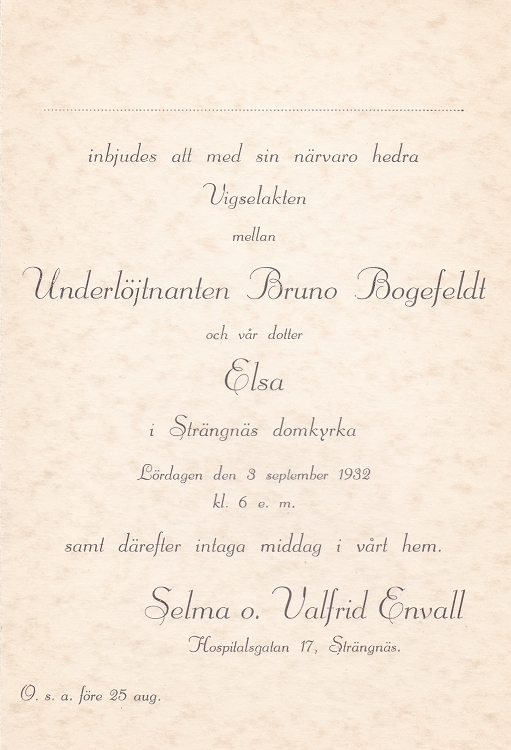 inbjudes att med sin närvaro hedra
Vigselakten
mellan
Underlöjtnanten Bruno Bogefeldt
och vår dotter
Elsa
i Strängnäs domkyrka
Lördagen den 3 september 1932
kl. 6 e. m.
samt därefter intaga middag i vårt hem.
Selma o. Valfrid Envall
Hospitalsgatan 17, Strängnäs.
O. s. a. före 25 aug.